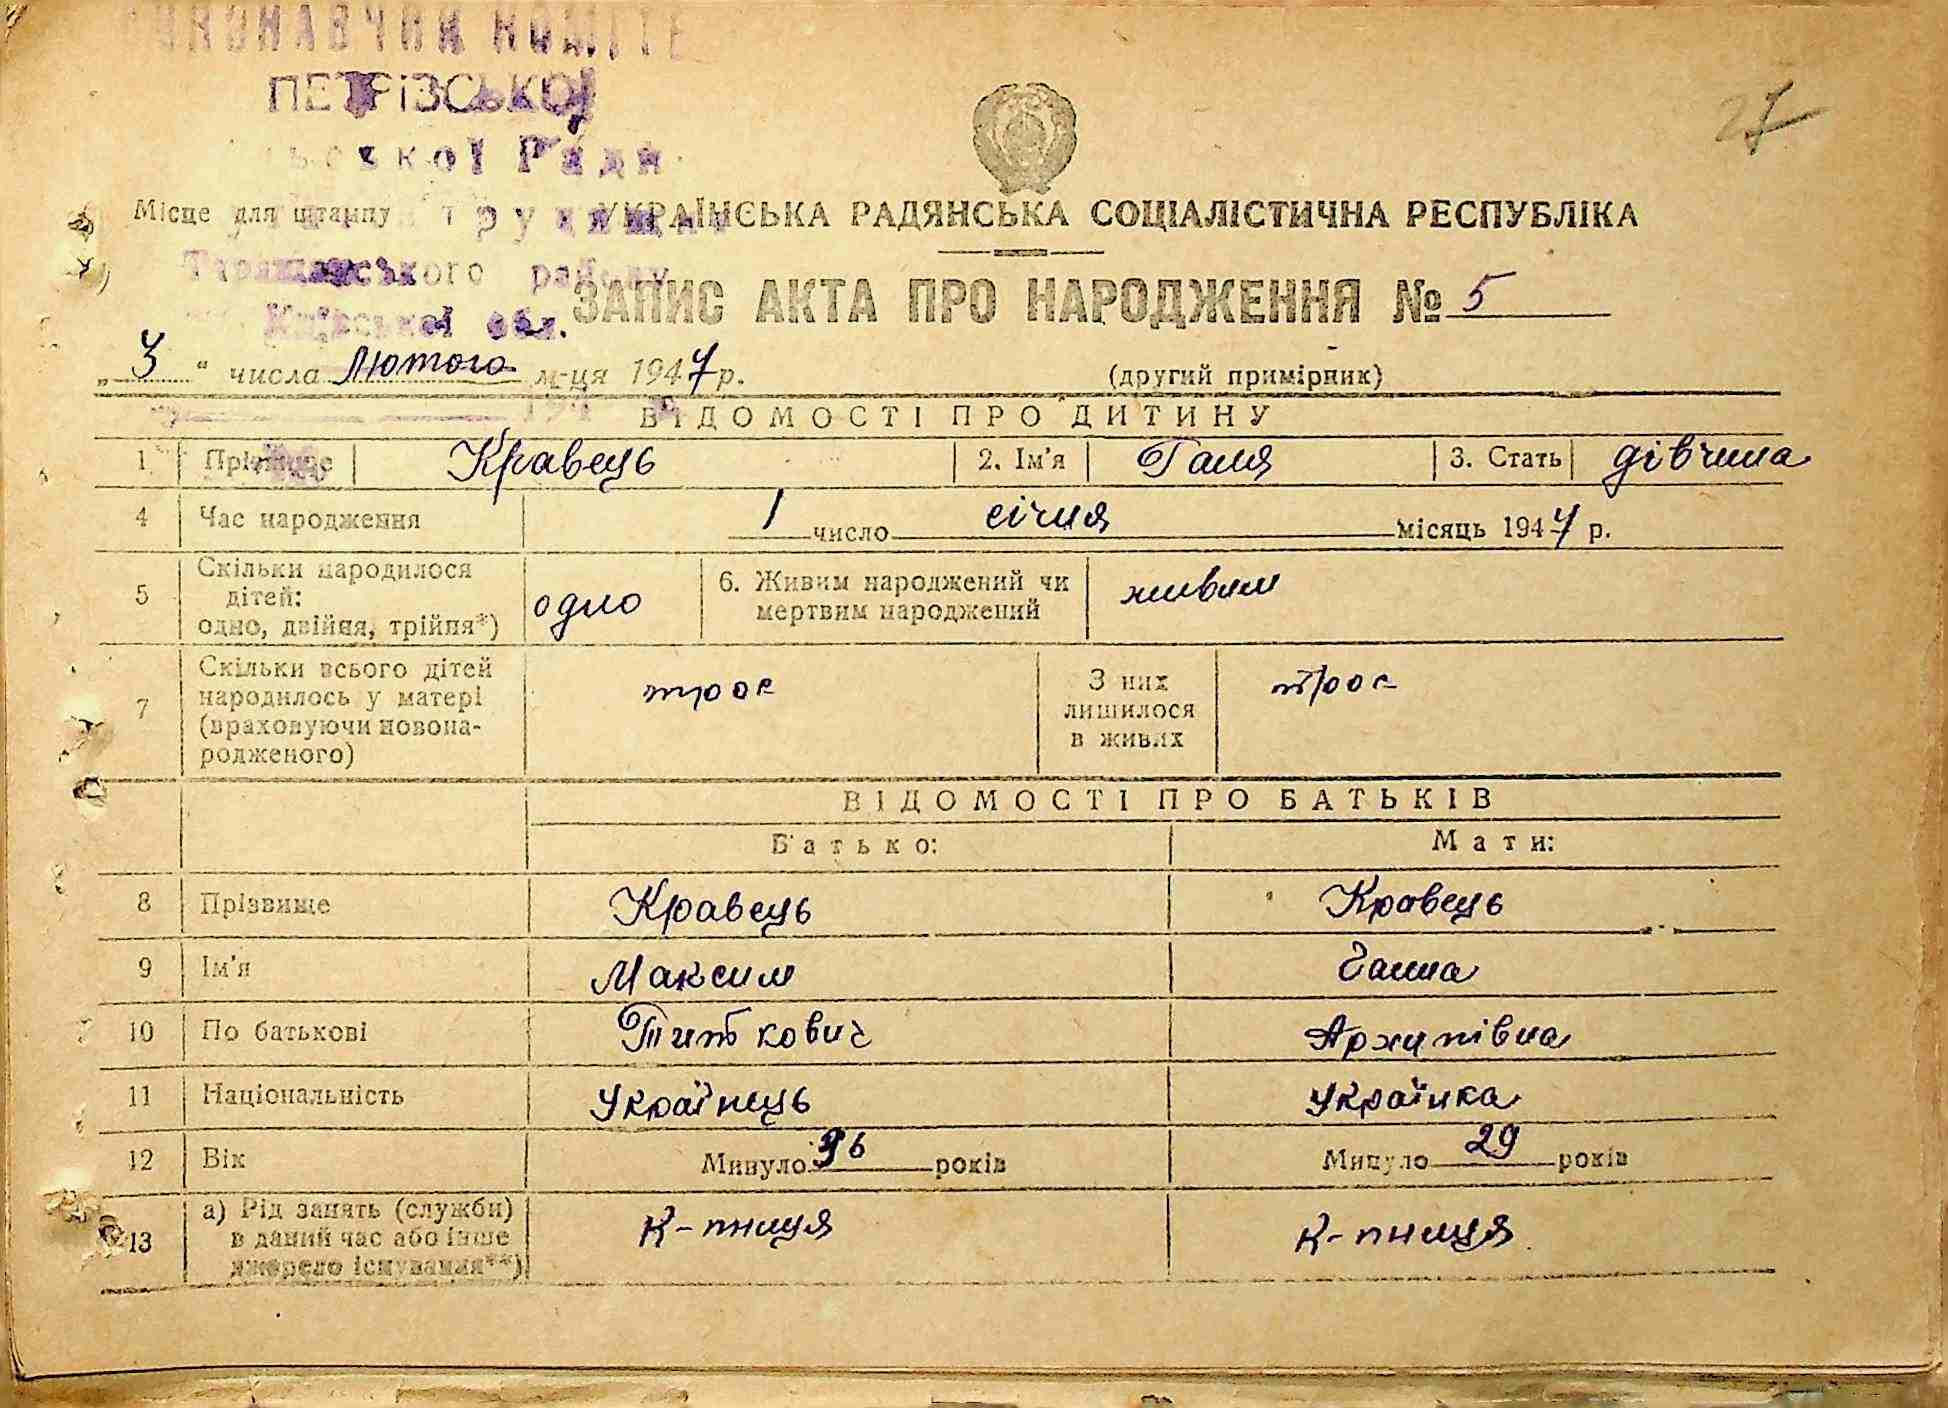 ПЕТРІВСЬКОЇ
27
Ради
Місце для штампу
УКРАЇНСЬКА РАДЯНСЬКА СОЦІАЛІСТИЧНА РЕСПУБЛІКА
Таращанського району
Київської обл.
ЗАПИС АКТА ПРО НАРОДЖЕННЯ № 5
„3“ числа лютого м-ця 1947 р.
(другий примірник)
ВІДОМОСТІ ПРО ДИТИНУ
1 Прізвище Кравець 2. Ім'я Галя 3. Стать дівчина
4 Час народження 1 число січня місяць 1947 р.
5 Скільки народилося дітей: одно, двійня, трійня*) одно 6. Живим народжений чи мертвим народжений живим
7 Скільки всього дітей народилось у матері (враховуючи новонародженого) троє З них лишилося в живих троє
ВІДОМОСТІ ПРО БАТЬКІВ
Батько: Мати:
8 Прізвище Кравець Кравець
9 Ім'я Максим Ганна
10 По батькові Титкович Архипівна
11 Національність Українець Українка
12 Вік Минуло 36 років Минуло 29 років
13 а) Рід занять (служби) в даний час або інше джерело існування**) К-пниця К-пниця